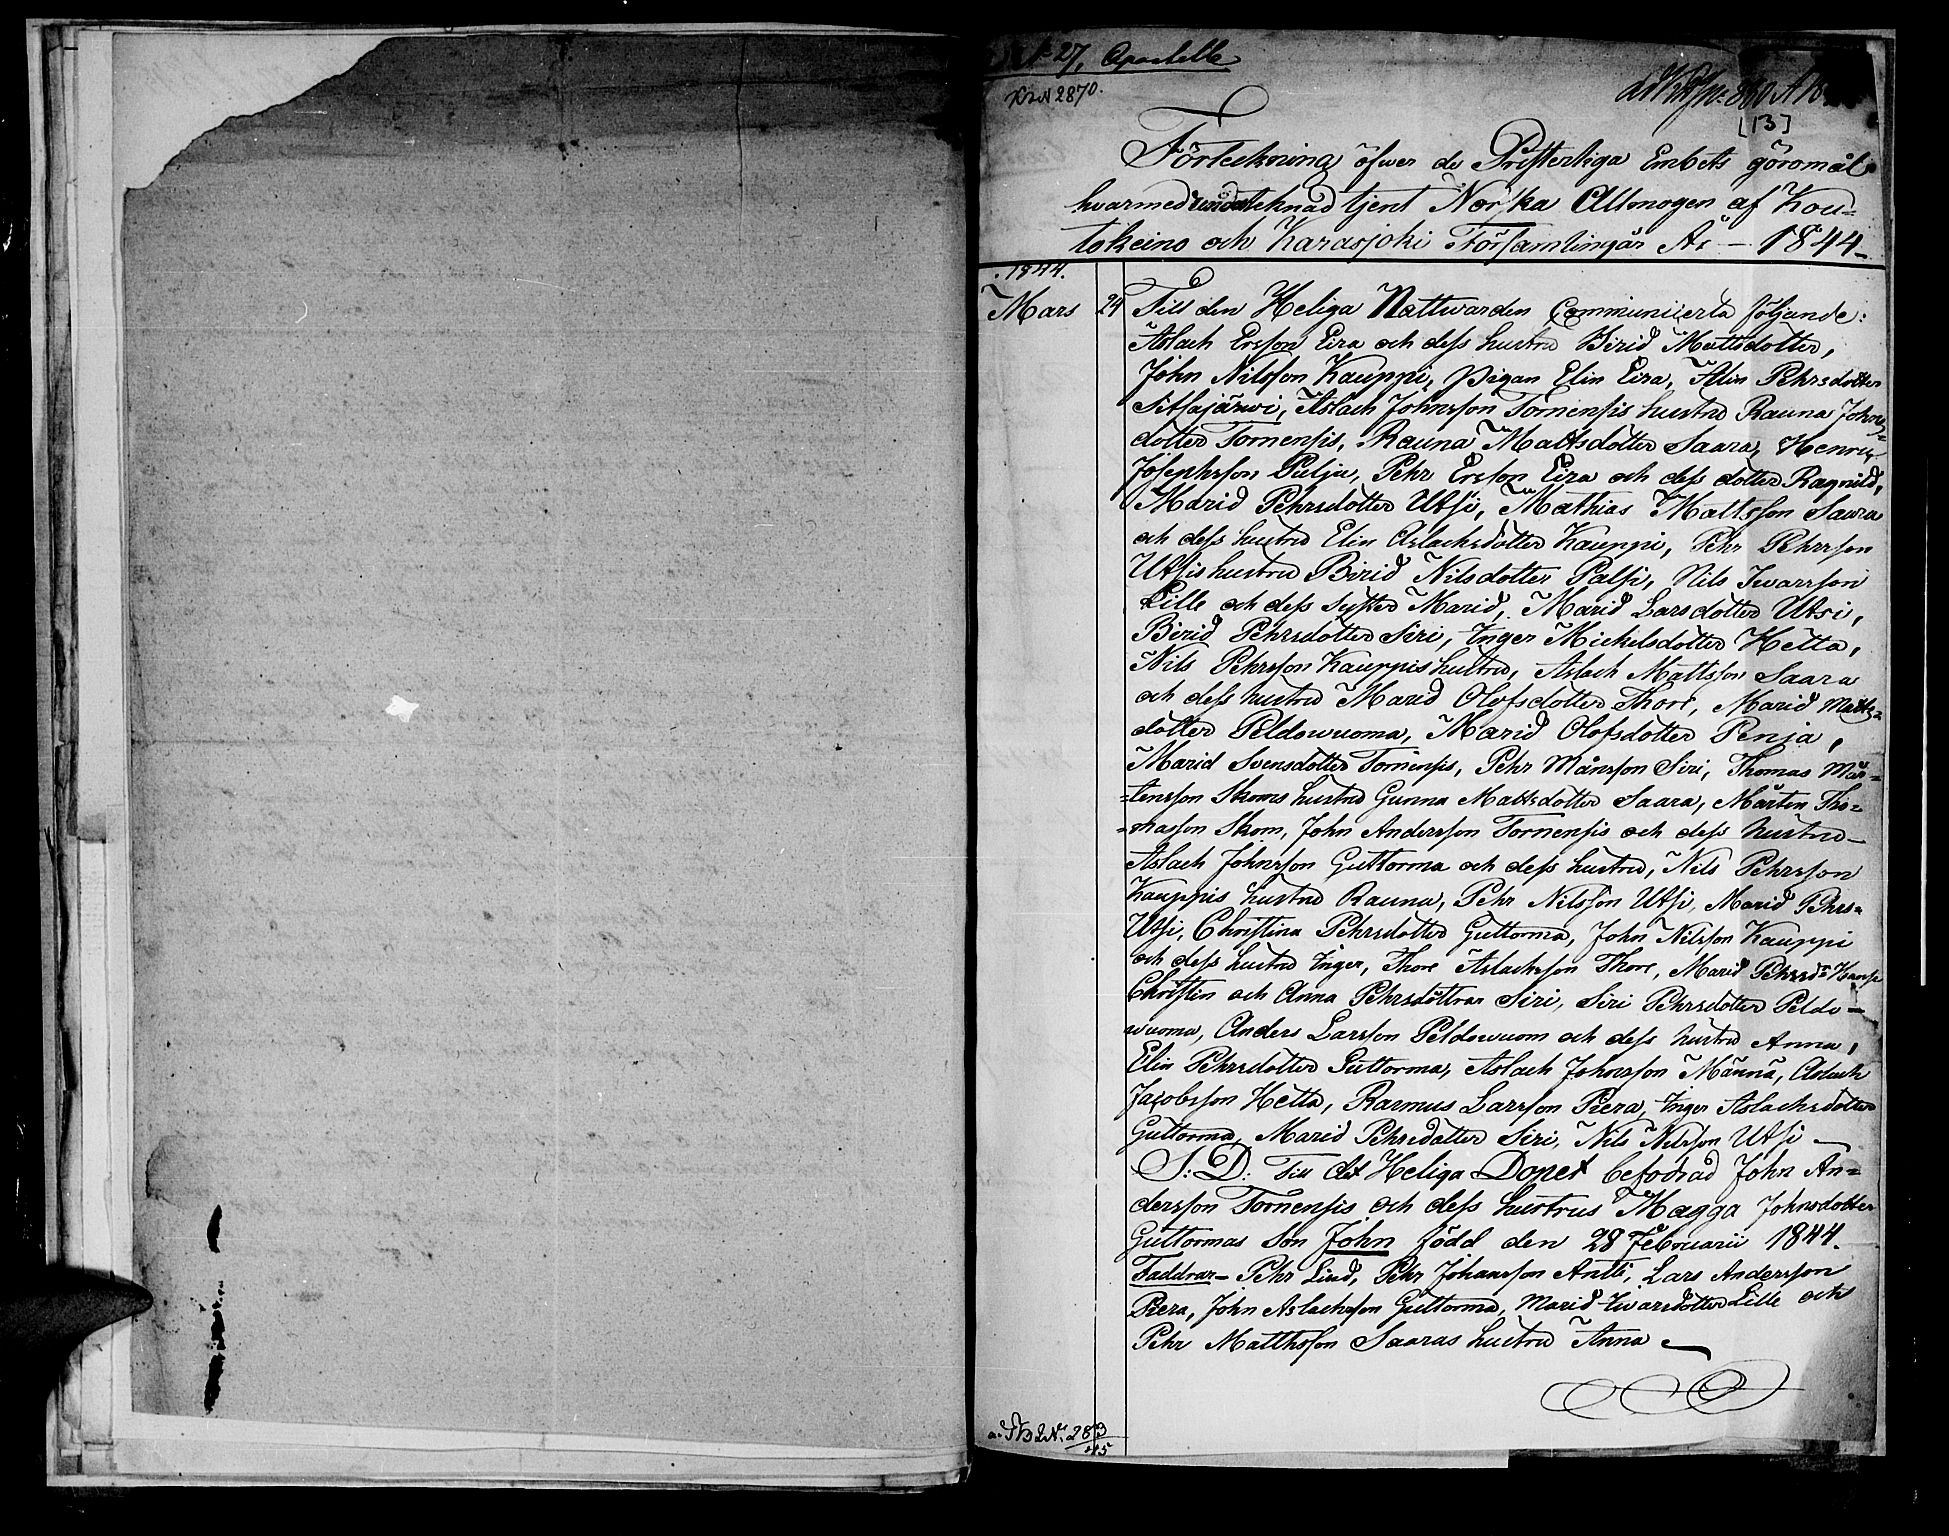 27, Apostelle
K2N 2870.
[13]
Förteckning öfwer de Presterliga Embets göromål
hvarmed undertecknad tjent Norska Allmogen af Kou-
tokeino och Karasjoki Församlingar År - 1844-
1844.
Mars 24 Till den Heliga Nattwarden Communicerta följande:
Aslach Ersson Eira och dess hustru Birid Mattsdotter,
John Nilsson Kauppi, Pigan Elin Eira, Alin Pehrsdotter
Sitsajärwi, Aslach Johnsson Tornensis hustru Rauna Johns-
dotter Tornensis, Rauna Mattsdotter Saara, Henric
Josephsson Pulju, Pehr Ersson Eira och dess dotter Ragnild,
Marid Pehrsdotter Utsi, Mathias Mattsson Saara
och dess hustru Elin Aslachsdotter Kauppi, Pehr Pehrsson
Utsis hustru Birid Nilsdotter Palsi, Nils Iwarsson
Lille och dess Syster Marid, Marid Larsdotter Utsi,
Birid Pehrsdotter Siri, Inger Michelsdotter Hetta,
Nils Pehrsson Kauppis hustru, Aslach Mattsson Saara
och dess hustru Marid Olofsdotter Thore, Marid Matts-
dotter Peldowuoma, Marid Olofsdotter Penja,
Marid Svensdotter Tornensis, Pehr Månsson Siri, Thomas Mår-
=tensson Skoms hustru Gunna Mattsdotter Saara, Mårten Tho-
=masson Skom, John Andersson Tornensis och dess hustru-
Aslach Johnsson Guttorma och dess hustru, Nils Pehrsson
Kauppis hustru Rauna, Pehr Nilsson Utsi, Marid Pehrs-
Utsi, Christina Pehrsdotter Guttorma, John Nilsson Kauppi
och dess hustru Inger, Thore Aslachsson Thore, Marid Pehrsd:r
Christin och Anna Pehrsdöttrar Siri, Siri Pehrsdotter Peldo-
wuoma, Anders Larsson Peldowuom och dess hustru Anna,
Elin Pehrsdotter Guttorma, Aslach Johnsson Männä, Aslach
Jacobsson Hetta, Rasmus Larsson Piera, Inger Aslachsdotter
Guttorma, Marid Pehrsdotter Siri, Nils Nilsson Utsi -
S: D. Till det Heliga Dopet befodrad John An-
dersson Tornensis och dess hustrus Magga Johnsdotter
Guttormas Son John född den 28 Februarii 1844.
Faddrar- Pehr Lind, Pehr Johansson Antti, Lars Andersson
Piera, John Aslachsson Guttorma, Marid Iwarsdotter Lille och
Pehr Matthsson Saaras hustru Anna -